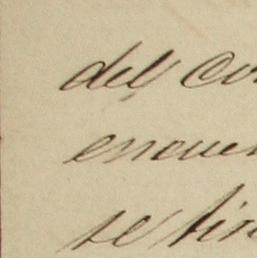 del Co
encuen
se fir